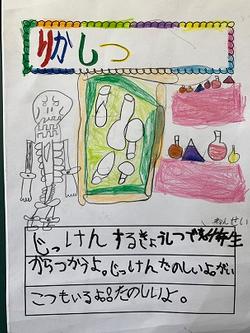 りかしつ
ねんせい
じっけんするきょうしつで年生
からつかうよ。じっけんたのしいよ。がい
こつもいるよ。たのしいよ。